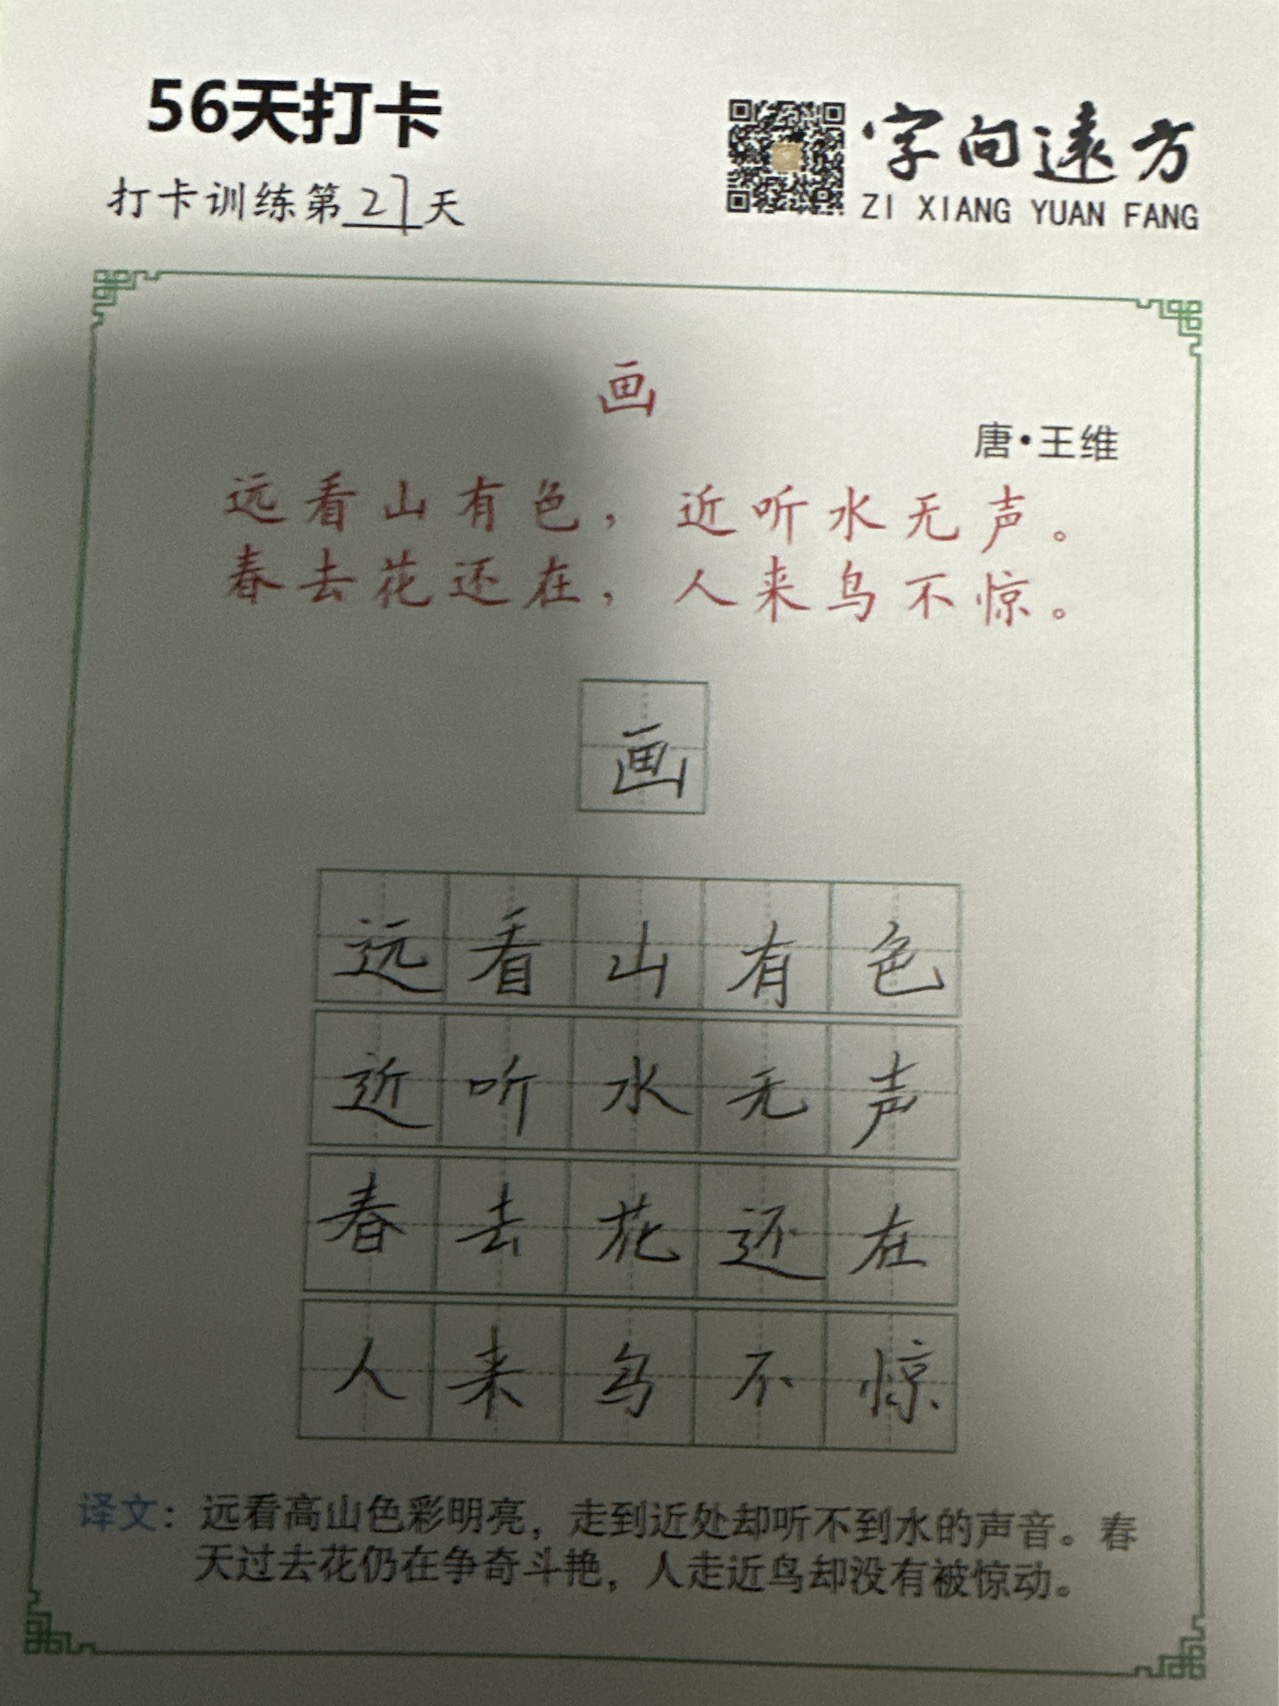 56天打卡
打卡训练第27天
字向遠方
ZI XIANG YUAN FANG
画
唐·王维
远看山有色，近听水无声。
春去花还在，人来鸟不惊。
画
远看山有色
近听水无声
春去花还在
人来鸟不惊
译文：远看高山色彩明亮，走到近处却听不到水的声音。春
天过去花仍在争奇斗艳，人走近鸟却没有被惊动。